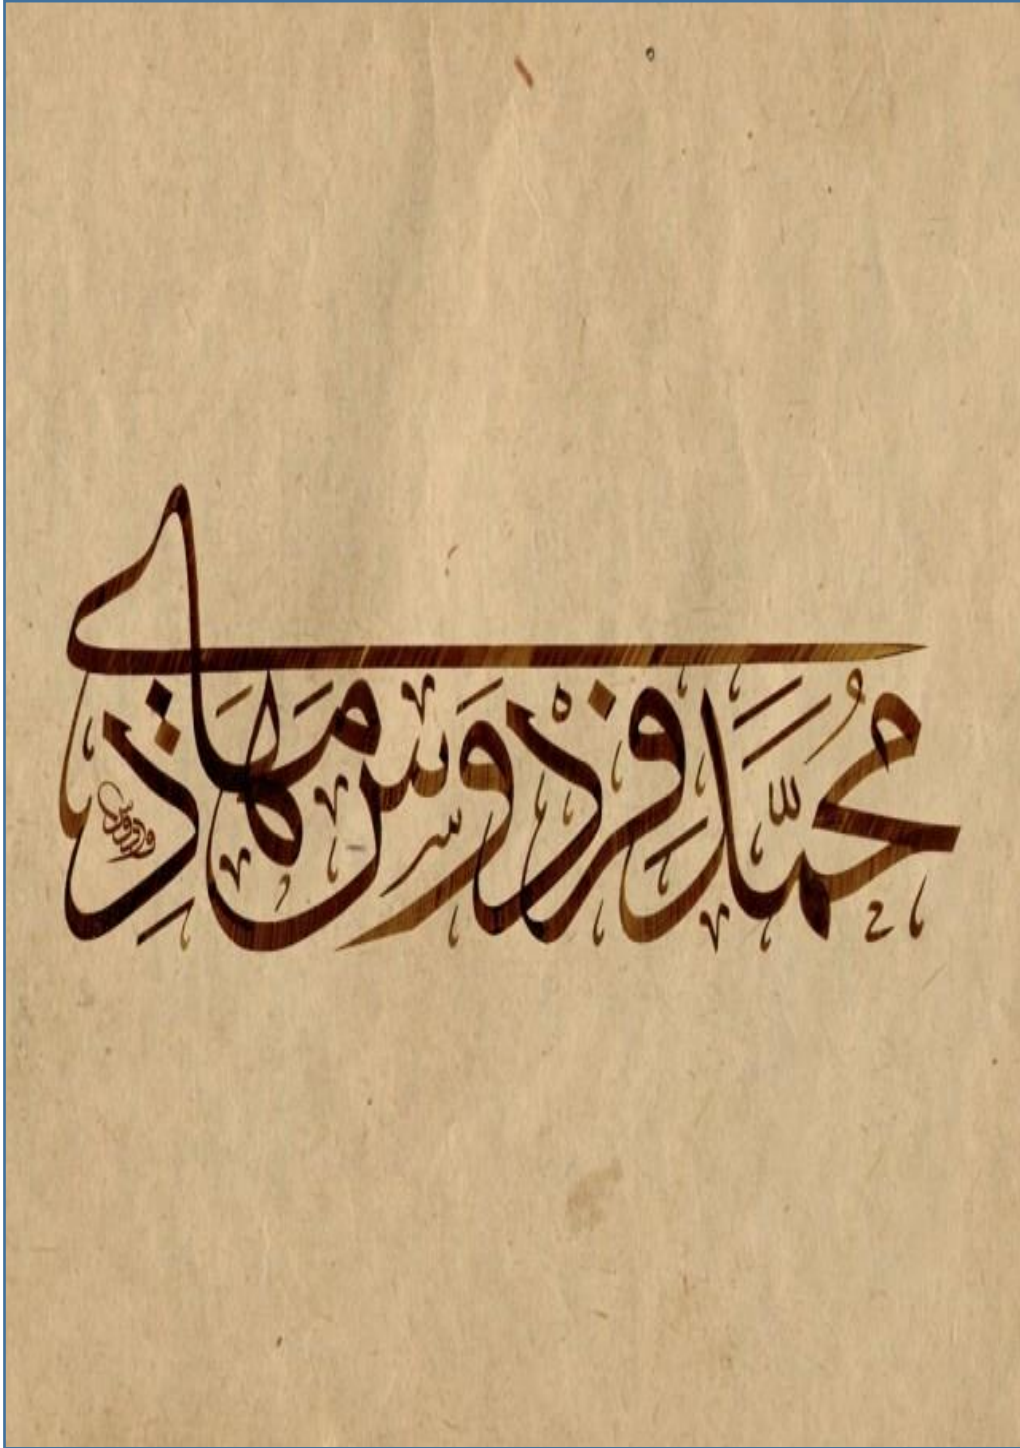 مُحَمَّد فِرْدَوْس مَهَاذِي